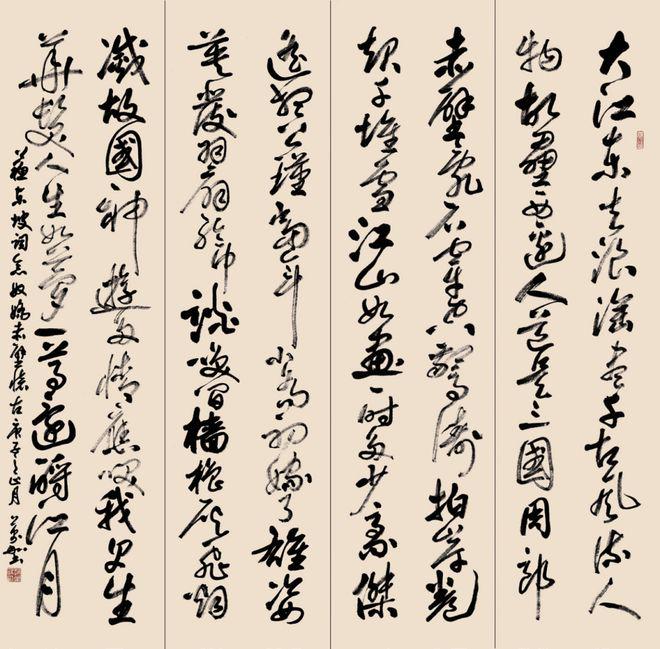 大江東去浪淘盡千古風流人
物故壘西邊人道是三國周郎
赤壁亂石穿空驚濤拍岸卷
起千堆雪江山如畫一時多少豪傑
遙想公瑾當年小喬初嫁了雄姿
英發羽扇綸巾談笑間檣櫓灰飛烟
滅故國神遊多情應笑我早生
華髮人生如夢一尊還酹江月
蘇東坡詞念奴嬌赤壁懷古庚子之正月